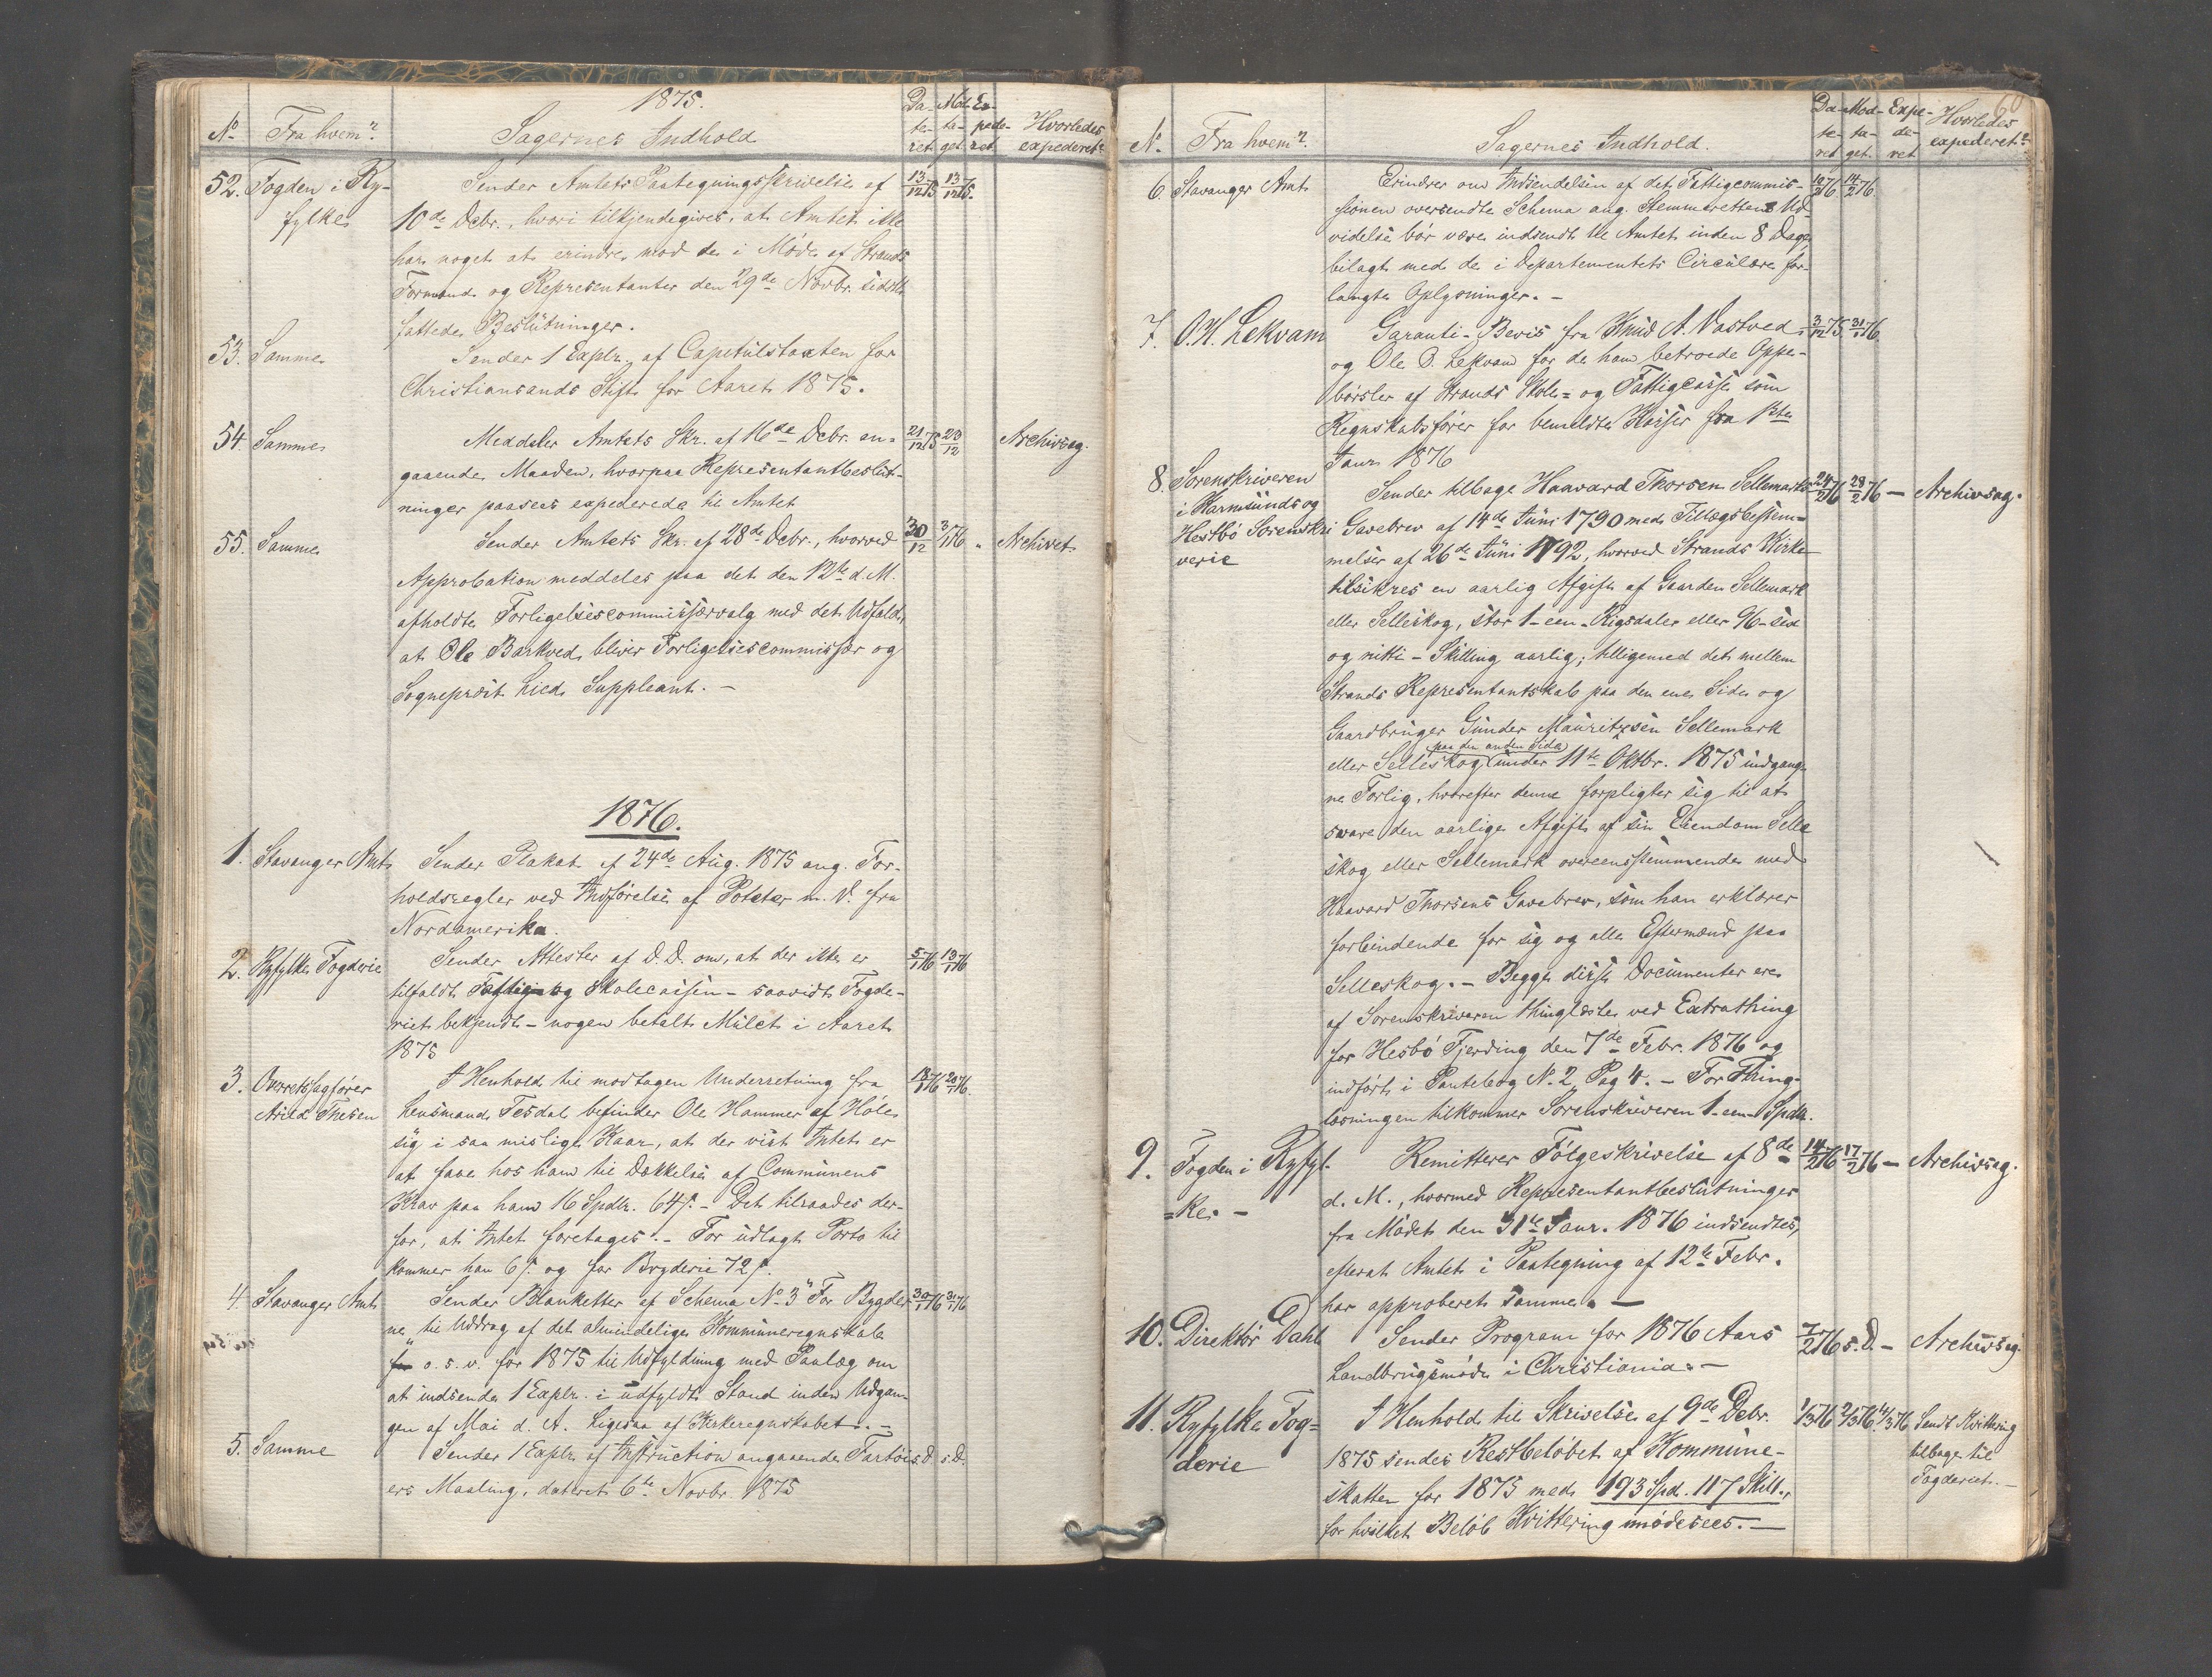 1875.
No Fra hvem? Sagernes Indhold Da-te-ret Mod-ta-get Ex-pede-ret Hvorledes expederet?
52. Fogden i Ry- Sender Amtets Paategningsskrivelse af 13/12 75 13/12 75.
fylke 10de Decbr., hvori tilkjendegives, at Amtet ikke
har noget at erindre mod de i Møde af Strands
Formænd og Repræsentanter den 29de Novbr. sidstl.
fattede Beslutninger.
53. Samme Sender 1 Explr. af Capitulstaxten for
Christiansands Stift for Aaret 1875.
54. Samme Meddeler Amtets Skr. af 16de Decbr. an- 21/12 75 23/12 Archivsag.
gaaende Maaden, hvorpaa Representantbeslut-
ninger paasees expederede til Amtet
55. Samme Sender Amtets Skr. af 28de Decbr., hvorved 30/12 3/1 76 " Archivet
Approbation meddeles paa det den 12te d. M.
afholdte Forligelsescommissærvalg med det Udfald,
at Ole Barkved bliver Forligelsescommissær og
Sogneprest Lied Suppleant. —
1876.
1. Stavanger Amt Sender Plakat af 24de Aug. 1875 ang. For-
holdsregler ved Indførelse af Poteter m. V. fra
Nordamerika.
2. Ryfylke Fogderie Sender Attester af D.D. om, at der ikke er 5/1 76 13/1 76
tilfaldt Fattig- og Skolecassen – saavidt Fogde-
riet bekjendt – nogen betalt Mulct i Aaret
1875
3. Overretssagfører I Henhold til modtagen Underretning fra 18/1 76 20/1 76.
Arild Thesen Lensmand Tesdal befinder Ole Hammer af Høle
sig i saa mislige Kaar, at der vist Intet er
at faae hos ham til Dækkelse af Communens
Krav paa ham 16 Spdlr. 64 s. – Det tilraades der-
for, at Intet foretages. – For udlagt Porto til
kommer han 6 s. og for Bryderie 72 s.
4. Stavanger Amt Sender Blanketter af Schema No 3 "For Bygder 30/1 76 31/1 76
ne" til Uddrag af det almindelige Kommuneregnskab
o. s. v. for 1875 til Udfyldning med Paalæg om
at indsende 1 Explr. i udfyldt Stand inden Udgan-
gen af Mai d. A. Ligesaa af Kirkeregnskabet. –
5. Samme Sender 1 Explr. af Instruction angaaende Fartøi- s.D. s.D.
ers Maaling, dateret 6te Novbr. 1875
60
No. Fra hvem? Sagernes Indhold. Da-te-ret Mod-ta-get. Expe-de-ret Hvorledes expederet?
6. Stavanger Amt Erindrer om Indsendelsen af det Fattigcommis- 12/2 76. 14/2 76.
sionen oversendte Schema ang. Stemmerettens Ud-
videlse bør være indsendt til Amtet inden 8 Dage,
bilagt med de i Departementets Circulære for-
langte Oplysninger. –
7. O. H. Lekvam Garanti-Bevis fra Knud A. Vastved 3/12 75. 31/1 76.
og Ole O. Lekvam for de ham betroede Oppe-
børsler af Strands Skole- og Fattigcasse som
Regnskabsfører for bemeldte Kasser fra 1ste
Janr. 1876
8. Sorenskriveren Sender tilbage Haavard Thorsen Sellemarks 24/2 76 28/2 76 — Archivsag.
i Karmsunds og
Hesbø Sorenskri Gavebrev af 14de Juni 1790 med Tillægsbestem-
verie melser af 26de Juni 1792, hvorved Strands Kirke
tilsikres en aarlig Afgift af Gaarden Sellemark
eller Selleskog, stor 1 – een – Rigsdaler eller 96 – sex
og nitti – Skilling aarlig; tilligemed det mellem
Strands Representantskab paa den ene Side og
Gaardbruger Gunder Mauritzsen Sellemark
paa den anden Side
eller Selleskog under 11te Oktbr. 1875 indgang-
ne Forlig, hvorefter denne forpligter sig til at
svare den aarlige Afgift af sin Eiendom Selle
skog eller Sellemark overeensstemmende med
Haavard Thorsens Gavebrev, som han erklærer
forbindende for sig og alle Eftermænd paa
Selleskog. – Begge disse Documenter ere
af Sorenskriveren thinglæste ved Extrathing
for Hesbø Fjerding den 7de Febr. 1876 og
indført i Pantebog No. 2, Pag 4. – For Thing-
læsningen tilkommer Sorenskriveren 1 – een – Spdlr.
9. Fogden i Ryfyl- Remitterer Følgeskrivelse af 8de 14/2 76 17/2 76 — Archivsag.
=ke. – d. M., hvormed Representantbeslutninger
fra Mødet den 31te Janr. 1876 indsendtes,
efterat Amtet i Paategning af 12te Febr.
har approberet samme. —
10. Direktør Dahl Sender Program for 1876 Aars 7/2 76 s.D. – Archivsag.
Landbrugsmøde i Christiania. –
11. Ryfylke Fog- I Henhold til Skrivelse af 9de Decbr. 1/3 76 2/3 76 4/3 76 Sendt Kvittering
derie 1875 sendes Restbeløbet af Kommune- tilbage til
skatten for 1875 med 193 Spd. 117 Skill., Fogderiet. –
for hvilket Beløb Kvittering imødesees. —